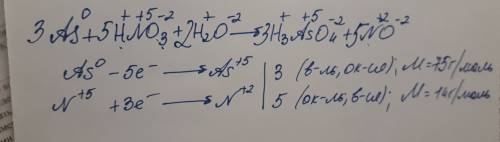 3 As⁰ + 5H⁺N⁺⁵O₃⁻² + 2H₂⁺O⁻² → 3H₃⁺As⁺⁵O₄⁻² + 5N⁺²O⁻²
As⁰ - 5e⁻ → As⁺⁵ | 3 (в-ль, ок-ие); M=75г/моль
N⁺⁵ + 3e⁻ → N⁺² | 5 (ок-ль, в-ие); M=14г/моль